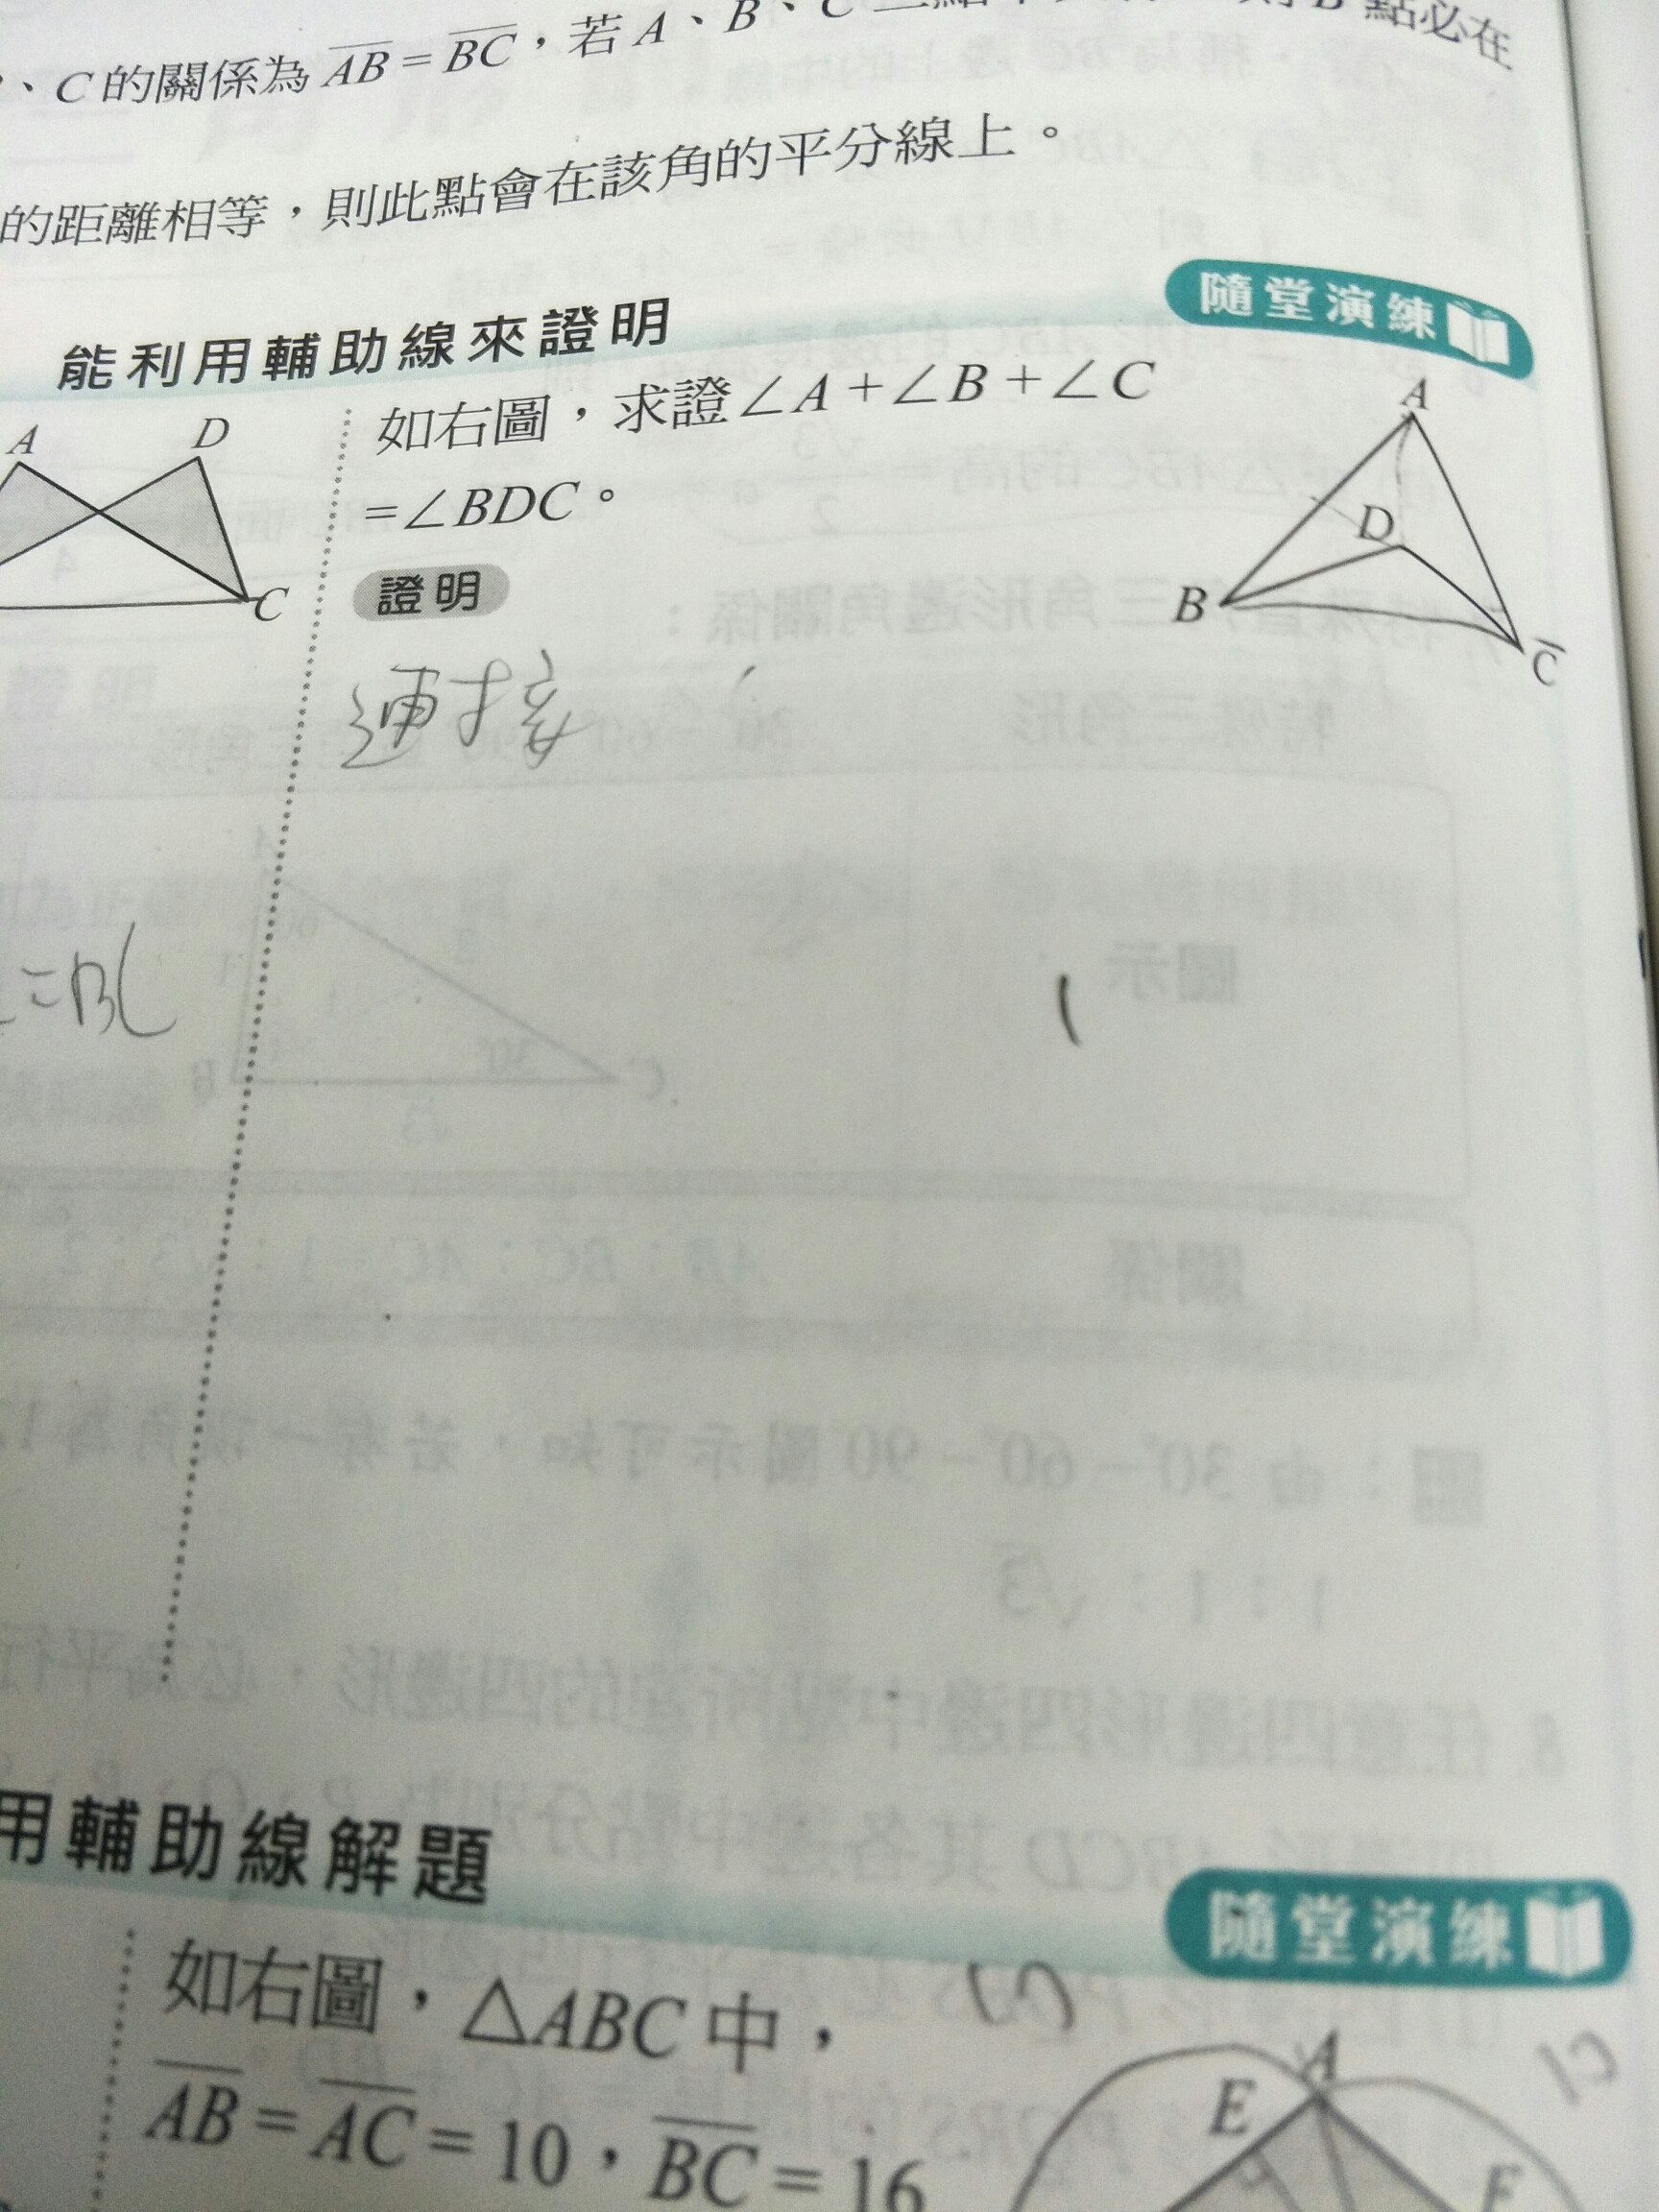 、C的關係為AB=BC,若A、B、C
點必在
的距離相等,則此點會在該角的平分線上。
能利用輔助線來證明
隨堂演練
A
D
C
如右圖,求證∠A+∠B+∠C
=∠BDC。
A
D
B
C
證明
連接
用輔助線解題
隨堂演練
如右圖,△ABC中,
AB=AC=10,BC=16
A
E
F